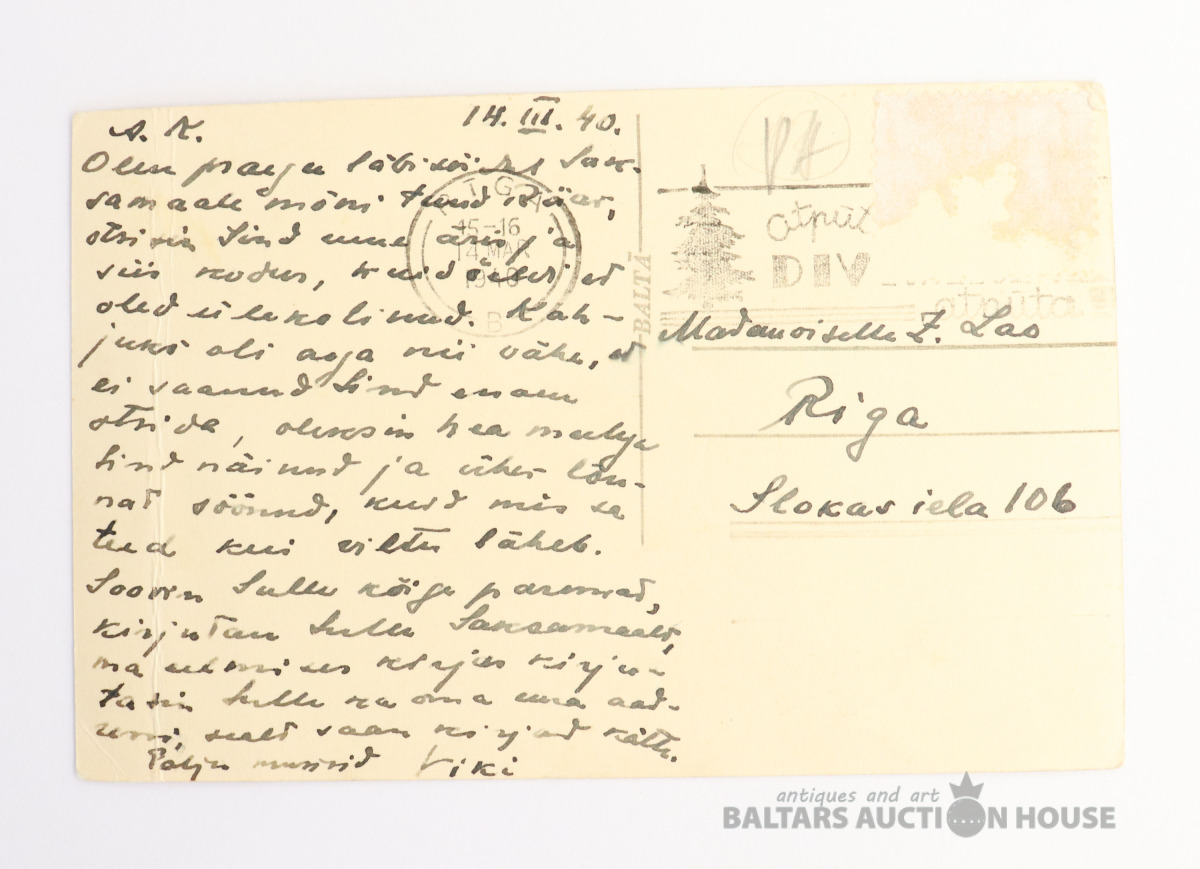 A. K.
14. III. 40.
Olen praegu läbisõidul Sak-
samaale mõni tund Riias,
otsisin Sind enne äris ja
siis kodus, kuid öeldi et
oled üle kolinud. Kah-
juks oli aega nii vähe, et
ei saanud Sind enam
otsida, oleksin hea meelega
Sind näinud ja ühes lõu-
nat söönud, kuid mis sa
teed kui viltu läheb.
Soovin Sulle kõige paremat,
kirjutan Sulle Saksamaalt,
ma eelmises kirjas kirju-
tasin Sulle ka oma uue aad-
ressi, sealt saan kirjad kätte.
Palju musisid Viki
RIGA
15-16
14 MAR
1940
B
BALTĀ
atpūt
DIV
atpūta
Madamoiselle Z. Lao
Riga
Slokas iela 106
antiques and art
BALTARS AUCTION HOUSE